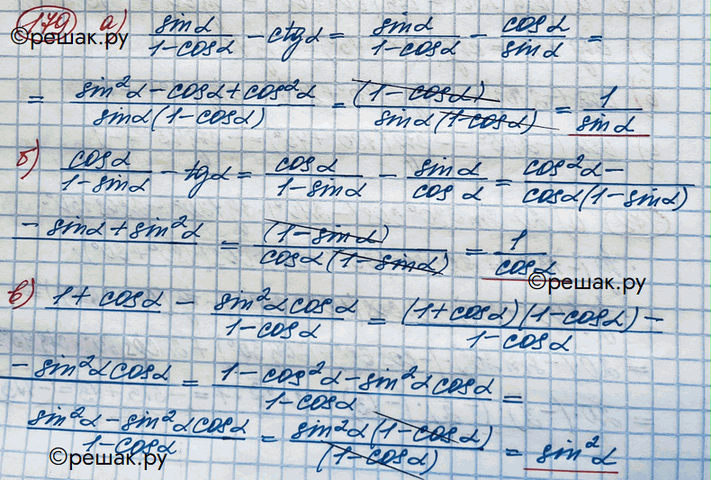 170 а) sinα/(1-cosα) - ctgα = sinα/(1-cosα) - cosα/sinα =
©решак.ру
= (sin²α - cosα + cos²α)/(sinα(1-cosα)) = (1-cosα)/(sinα(1-cosα)) = 1/sinα
б) cosα/(1-sinα) - tgα = cosα/(1-sinα) - sinα/cosα = (cos²α -)/(cosα(1-sinα))
- sinα + sin²α = (1-sinα)/(cosα(1-sinα)) = 1/cosα
©решак.ру
в) 1 + cosα - sin²α cosα/(1-cosα) = ((1+cosα)(1-cosα) -)/(1-cosα)
- sin²α cosα = (1 - cos²α - sin²α cosα)/(1-cosα) =
(sin²α - sin²α cosα)/(1-cosα) = sin²α(1-cosα)/(1-cosα) = sin²α
©решак.ру